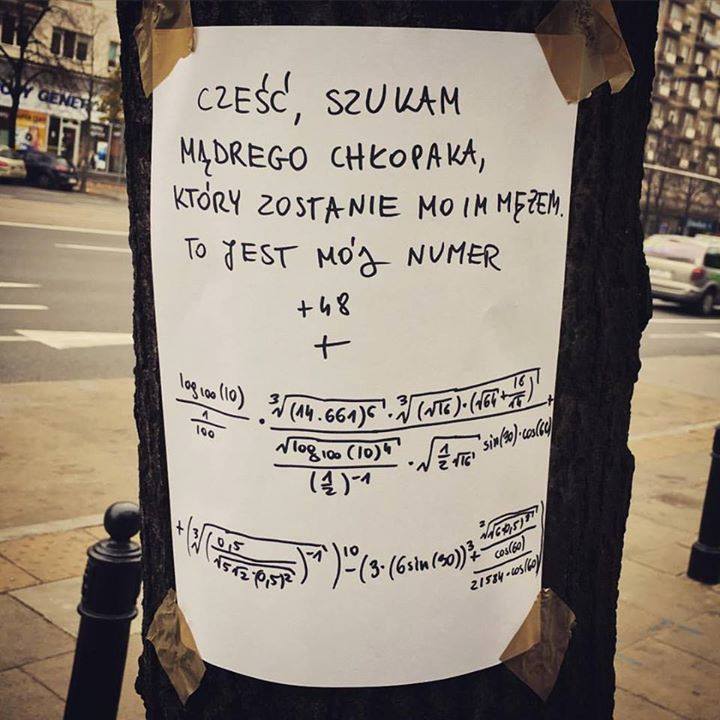 CZEŚĆ, SZUKAM
MĄDREGO CHŁOPAKA,
KTÓRY ZOSTANIE MOIM MĘŻEM.
TO JEST MÓJ NUMER
+48
+
log₁₀₀(10)/(1/100) · ∛(14.661)⁶ · ∛((√16)·(√64+16/14)) / (√log₁₀₀(10)⁴/(1/2)⁻¹ · √(1/2 √16) sin(90)·cos(60)) +
+(∛(0,5/(√5√2·(0,5)²))⁻¹)¹⁰-(3·(6sin(90))³+
cos(60)
21584·cos(60)